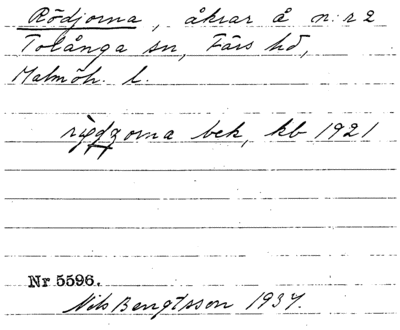 Rödjorna, åkrar å n:r 2
Tolånga sn, Färs hd,
Malmöh. l.
bek, kb 1921
Nr 5596.
Nils Bengtsson 1937.